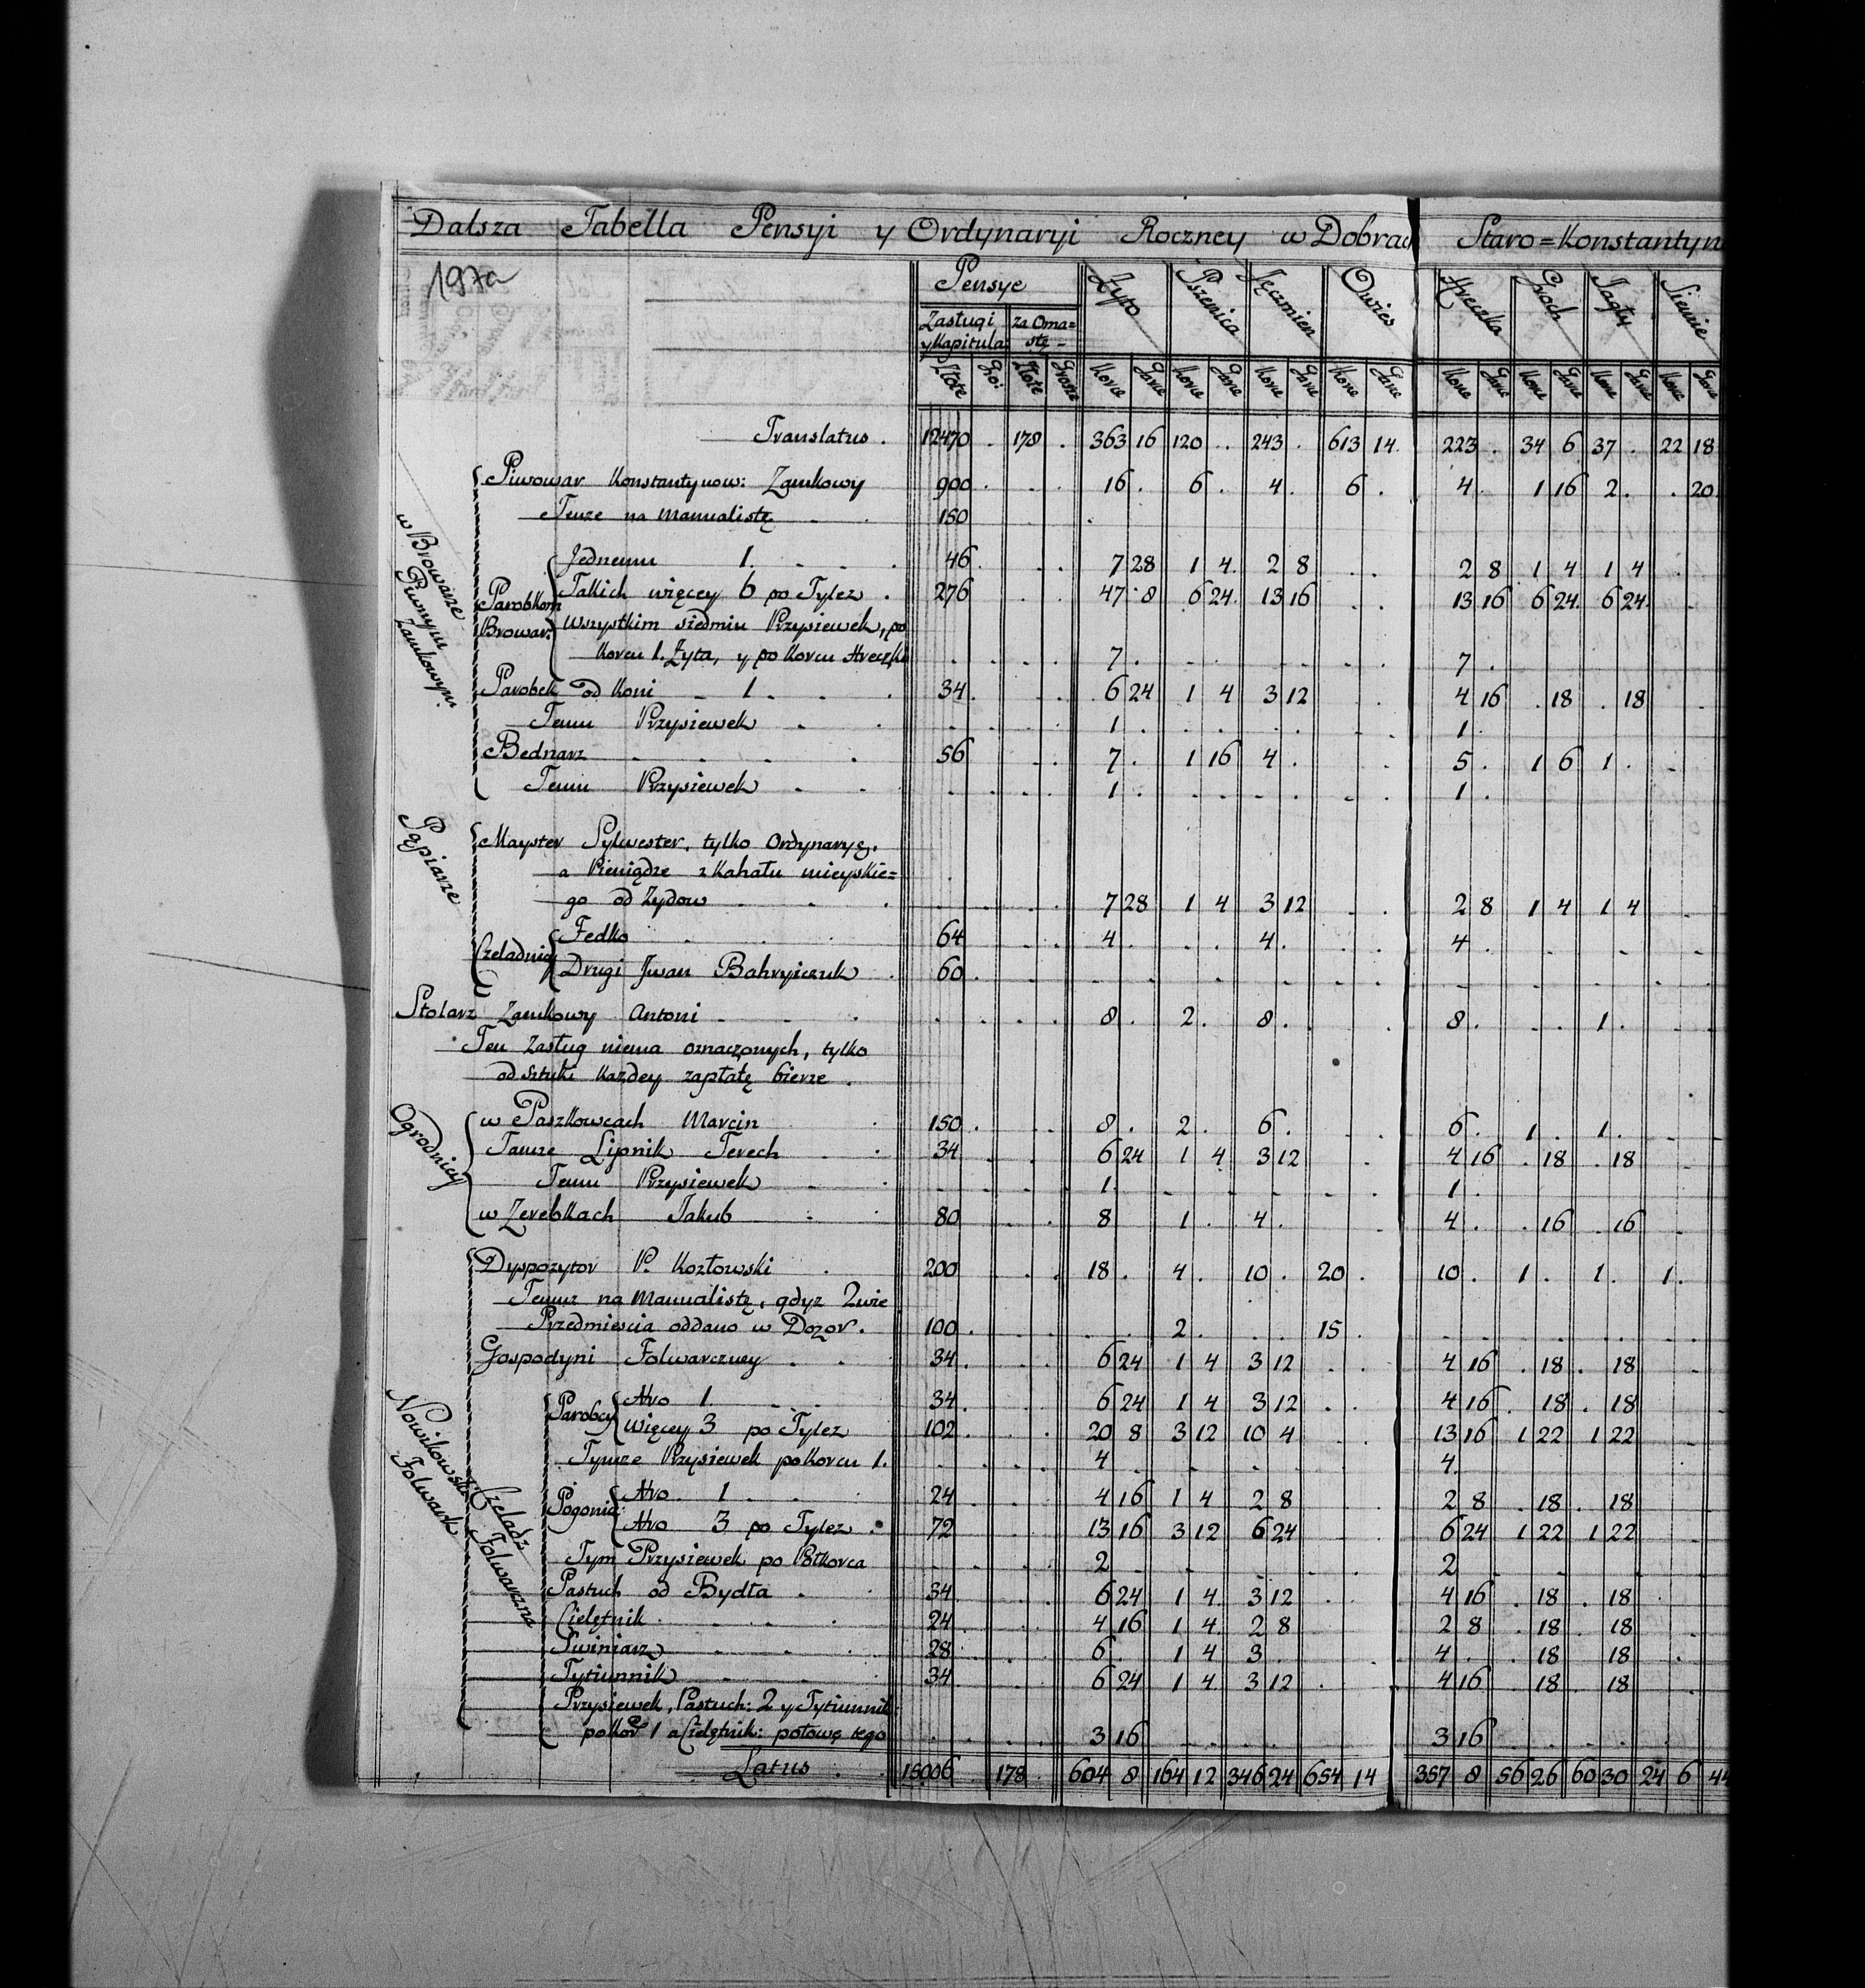 Dalsza Tabella Pensyi y Ordynaryi Roczney w Dobrach Staro=Konstantyn
197a
Pensye Żyto Pszenica Jęczmien Owies Hreczka Groch Jagły Siemie
Zasługi y Kapitula za Oma= stę
Złote Gro: Złote Grosze Korce Garce Korce Garce Korce Garce Korce Garce Korce Garce Korce Garce Korce Garce Korce Garce
Translatus . 12470 . 178 . 363 16 120 . . 243 . 613 14 223 . 34 6 37 . 22 18
w Browarze Piwnym Zamkowym
Piwowar Konstantynow: Zamkowy 900 . 16 . 6 . 4 . 6 . 4 . 1 16 2 . . 20
Temze na Manualistę 150
Parobkom Browar:
Jednemu 1. 46 . 7 28 1 4 2 8 . . 2 8 1 4 1 4
Takich więcey 6 po Tylez . 276 47 8 6 24 13 16 . . 13 16 6 24 6 24
Wszystkim siedmiu Przysiewek, po
Korcu 1. Zyta, y po Korcu Hreczki 7 . 7 .
Parobek od Koni 1 . 34 . 6 24 1 4 3 12 4 16 . 18 . 18
Temu Przysiewek 1 . 1 .
Bednarz 56 7 . 1 16 4 . 5 . 1 6 1 .
Temu Przysiewek 1 . 1 .
Papiarze
Mayster Sylwester, tylko Ordynaryę,
a Pieniądze z Kahału mieyskie=
go od Zydow 7 28 1 4 3 12 2 8 1 4 1 4
Czeladnicy
Fedko 64 4 . 4 . 4 .
Drugi Jwan Bahryiczuk 60
Stolarz Zamkowy Antoni 8 . 2 . 8 . 8 . 1 .
Ten Zasług niema oznaczonych, tylko
od sztuki Kazdey zapłatę bierze .
Ogrodnicy
w Paszkowcach Marcin 150 . 8 . 2 . 6 . 6 . 1 . 1 .
Tamze Lipnik Terech 34 6 24 1 4 3 12 4 16 . 18 . 18
Temu Przysiewek 1 . 1 .
w Zerebkach Jakub 80 8 1 . 4 . 4 . . 16 . 16
Nowikowski Folwark
Dyspozytor P. Kozłowski 200 18 . 4 . 10 . 20 . 10 . 1 . 1 . 1 .
Temuz na Manualistę, gdyz 2wie
Przedmiescia oddano w Dozor . 100 . 2 . 15 .
Gospodyni Folwarczney 34 . 6 24 1 4 3 12 4 16 . 18 . 18
Czeladz Folwarczna
Parobcy
Nro 1. 34 . 6 24 1 4 3 12 4 16 . 18 . 18
Więcey 3 po Tylez 102 . 20 8 3 12 10 4 13 16 1 22 1 22
Tymze Przysiewek po Korcu 1. 4 4 .
Pogonicz
Nro 1 24 . 4 16 1 4 2 8 2 8 . 18 . 18
Nro 3 po Tylez . 72 13 16 3 12 6 24 6 24 1 22 1 22
Tym Przysiewek po Połkorca 2 2
Pastuch od Bydła 34 . 6 24 1 4 3 12 4 16 . 18 . 18
Cielętnik 24 . 4 16 1 4 2 8 2 8 . 18 . 18
Swiniarz 28 . 6 . 1 4 3 . 4 . . 18 . 18
Tytiunnik 34 6 24 1 4 3 12 4 16 . 18 . 18
Przysiewek, Pastuch: 2 y Tytiunnik:
po Kor 1 a Cielętnik: połowę tego 3 16 3 16
Latus . 15006 178 604 8 164 12 346 24 654 14 357 8 56 26 60 30 24 6 44